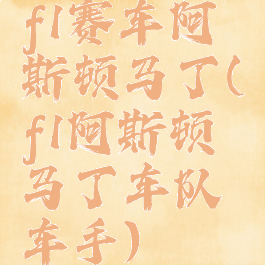 f1赛车阿
斯顿马丁(
f1阿斯顿
马丁车队
车手)